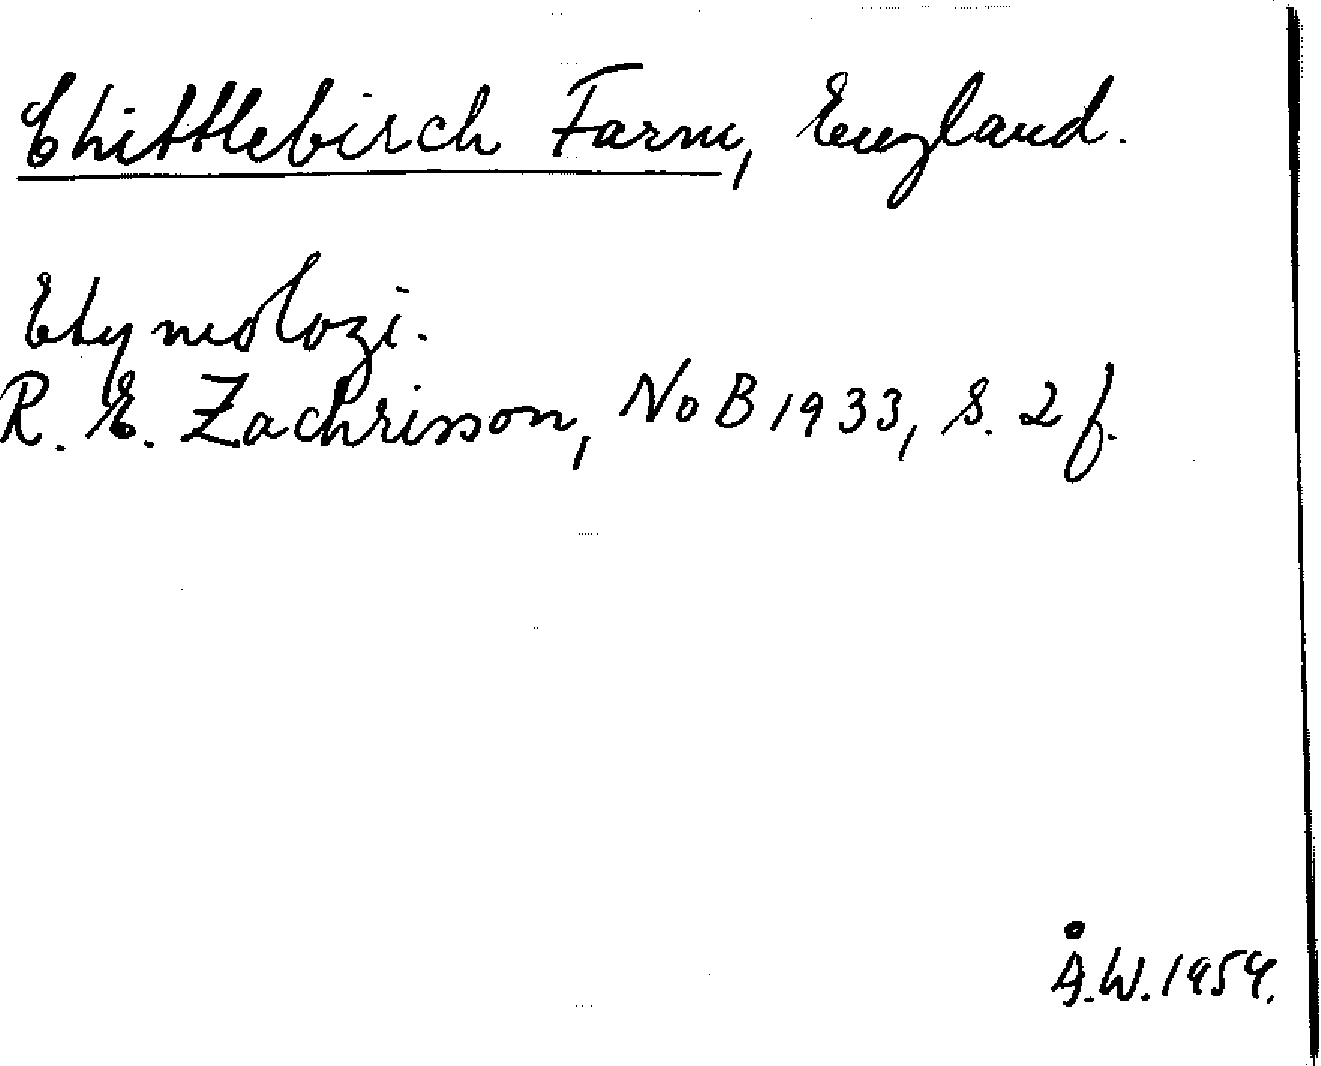 Chittlebirch Farm, England.
Etymologi.
R. E. Zachrisson, NoB 1933, s. 2 f.
Å.W. 1954.